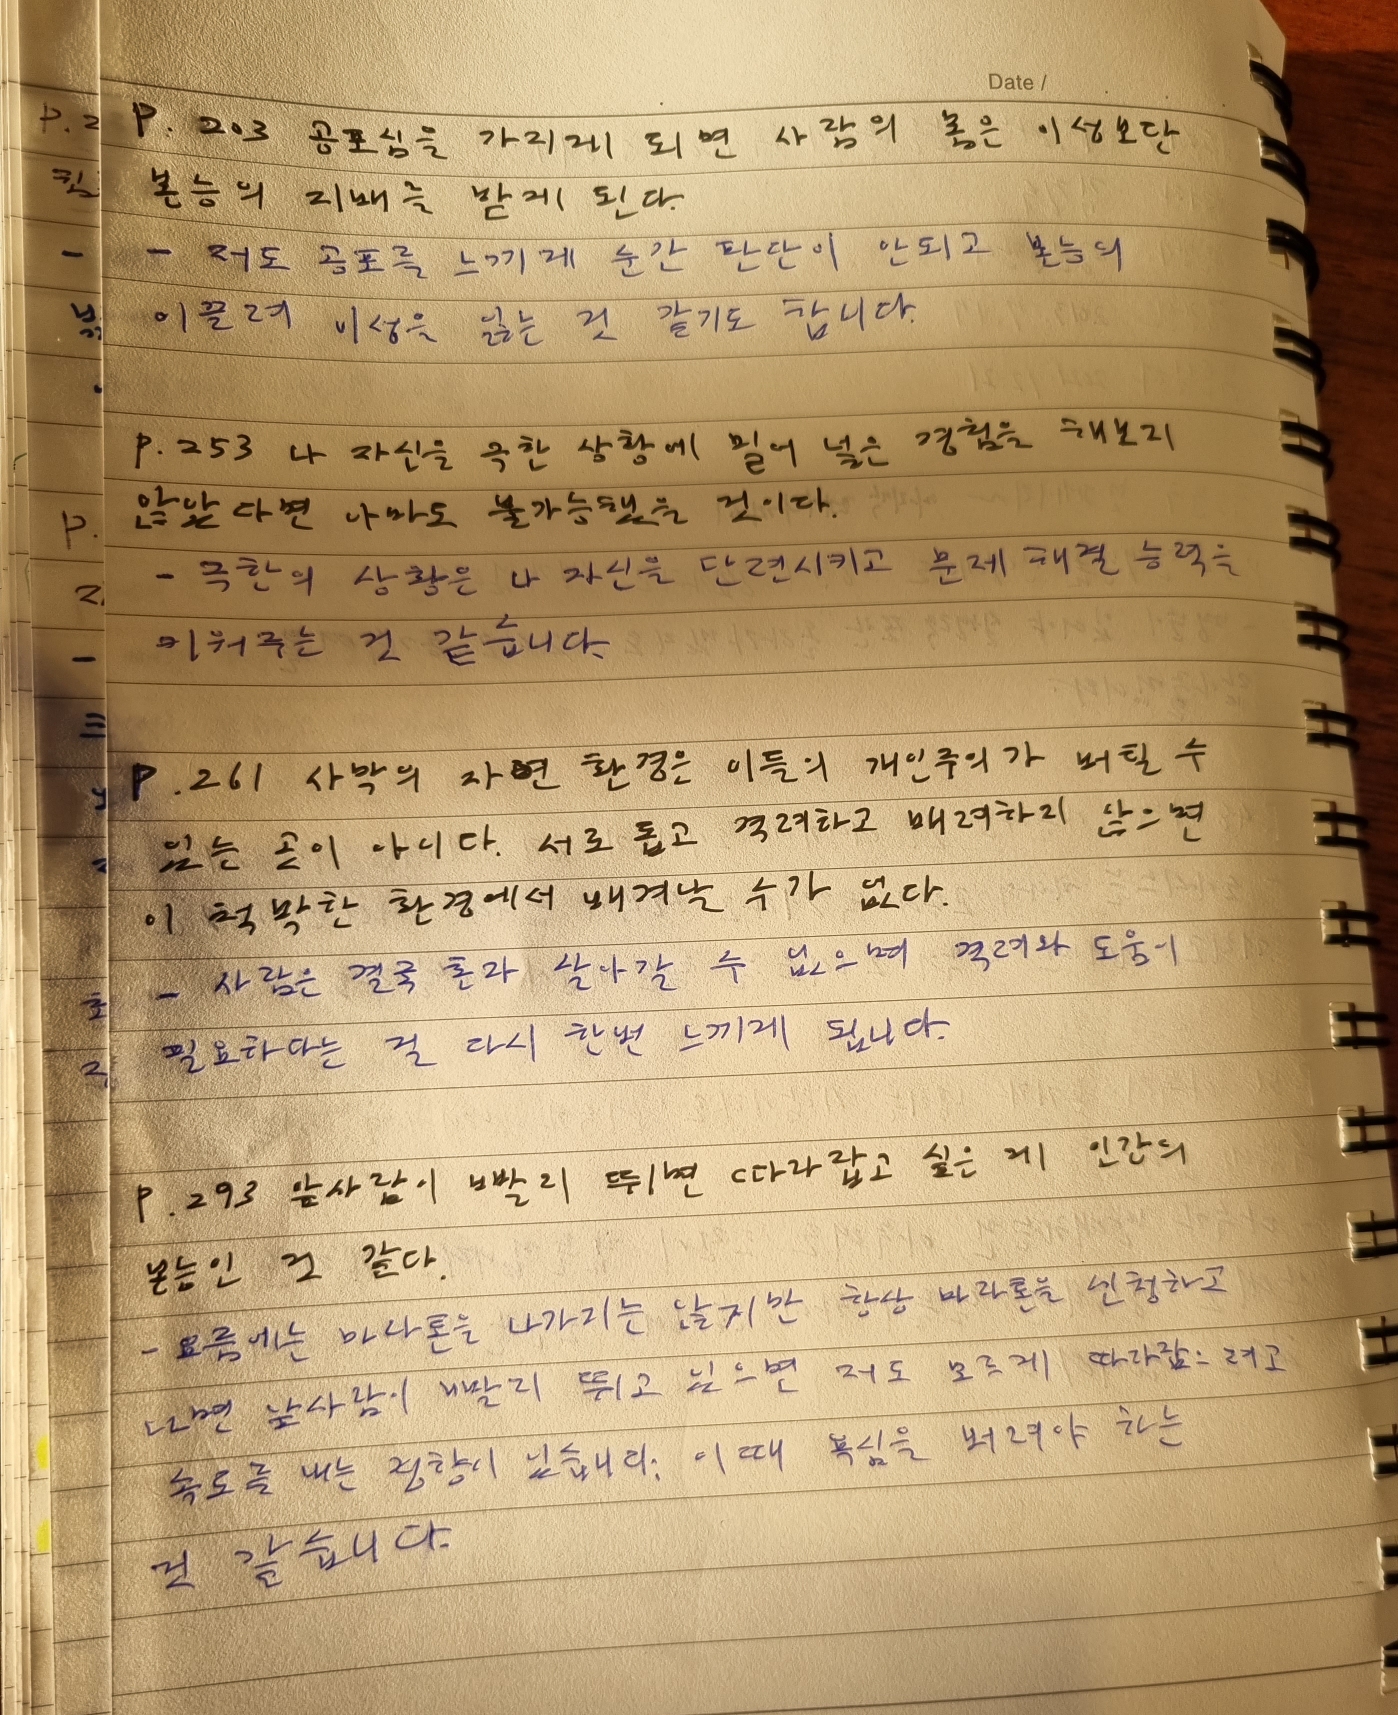 Date /
P. 203 공포심을 가지게 되면 사람의 몸은 이성보단
본능의 지배를 받게 된다.
- 저도 공포를 느끼게 순간 판단이 안되고 본능의
이끌려 이성을 잃는 것 같기도 합니다.
P. 253 나 자신을 극한 상황에 밀어 넣은 경험을 해보지
않았다면 아마도 불가능했을 것이다.
- 극한의 상황은 나 자신을 단련시키고 문제 해결 능력을
키워주는 것 같습니다.
P. 261 사막의 자연 환경은 이들의 개인주의가 버틸 수
있는 곳이 아니다. 서로 돕고 격려하고 배려하지 않으면
이 척박한 환경에서 배겨날 수가 없다.
- 사람은 결국 혼자 살아갈 수 없으며 격려와 도움이
필요하다는 걸 다시 한번 느끼게 됩니다.
P. 293 앞사람이 빨리 뛰면 따라잡고 싶은 게 인간의
본능인 것 같다.
- 요즘에는 마라톤을 나가지는 않지만 항상 마라톤을 신청하고
나가면 앞사람이 빨리 뛰고 있으면 저도 모르게 따라잡으려고
속도를 내는 경향이 있습니다. 이때 욕심을 버려야 하는
것 같습니다.